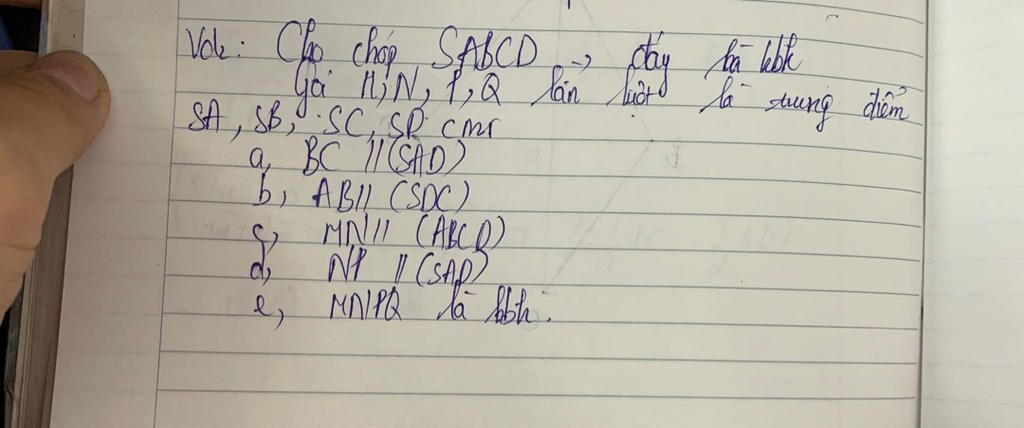 Vd2: Cho chóp SABCD -> đáy là hbh
Gọi M, N, P, Q lần lượt là trung điểm
SA, SB, SC, SD cmr
a, BC // (SAD)
b, AB // (SDC)
c, MN // (ABCD)
d, NP // (SAD)
e, MNPQ là hbh.